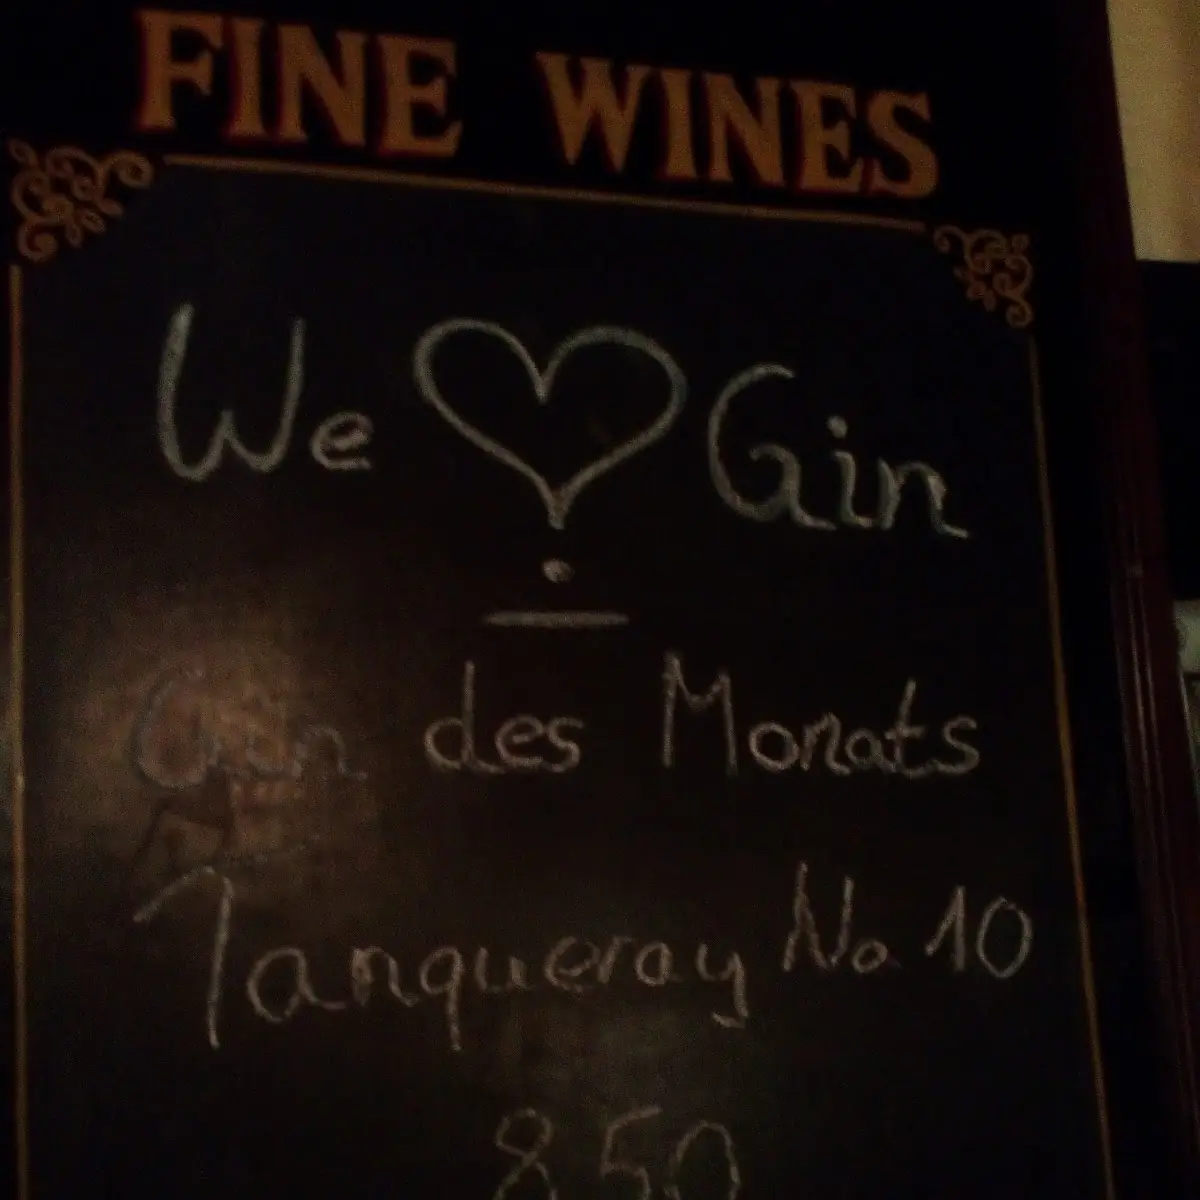 FINE WINES
We ♡ Gin
Gin des Monats
Tanqueray No 10
8 50